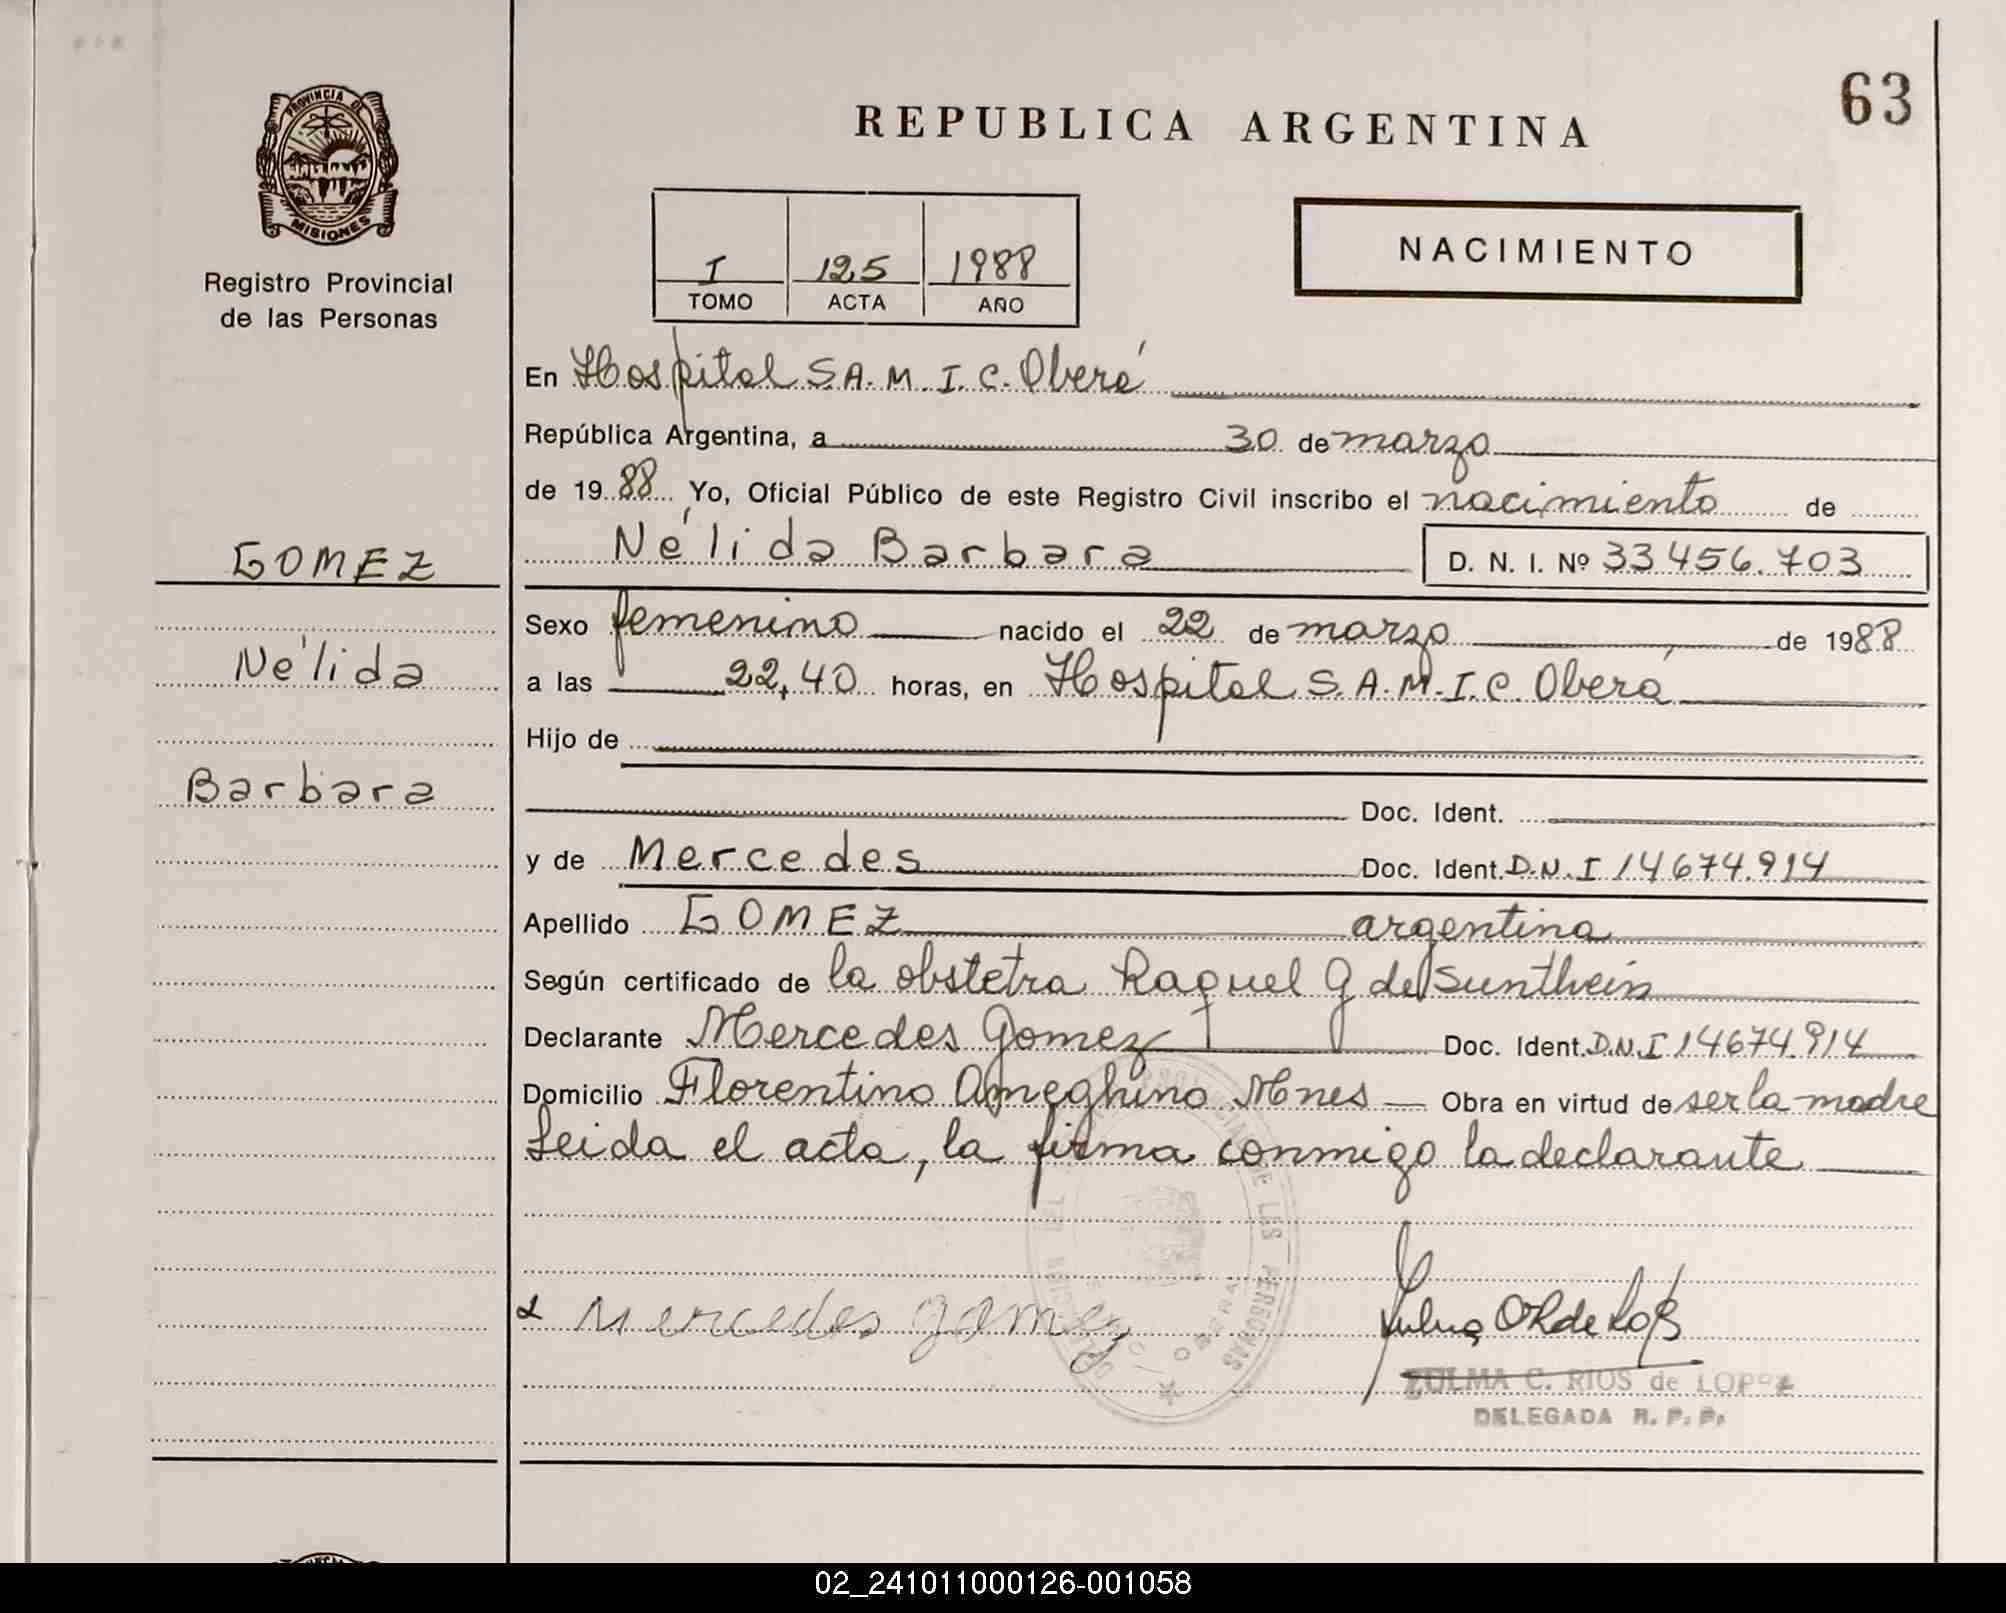 63
PROVINCIA DE
MISIONES
REPUBLICA ARGENTINA
Registro Provincial
de las Personas
I 125 1988
TOMO ACTA AÑO
NACIMIENTO
En Hospital S.A.M.I.C. Oberá
República Argentina, a 30 de marzo
de 1988 Yo, Oficial Público de este Registro Civil inscribo el nacimiento de
GOMEZ
Nélida Barbara D. N. I. Nº 33456.703
Sexo femenino nacido el 22 de marzo de 1988
Nélida
a las 22,40 horas, en Hospital S.A.M.I.C. Oberá
Hijo de
Barbara
Doc. Ident.
y de Mercedes Doc. Ident. D.N.I 14674.914
Apellido GOMEZ argentina
Según certificado de la obstetra Raquel G de Sunthein
Declarante Mercedes Gomez Doc. Ident. D.N.I 14674.914
Domicilio Florentino Ameghino Mnes Obra en virtud de ser la madre
Leida el acta, la firma conmigo la declarante
DE LAS PERSONAS
OBERA
Mercedes gomez
ZULMA C. RIOS de LOPEZ
DELEGADA R. P. P.
02_241011000126-001058